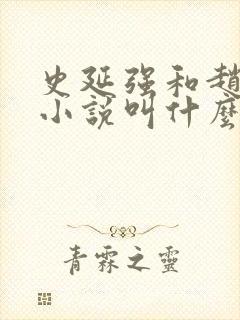 史延强和趙
小說叫什麼
青霖之靈